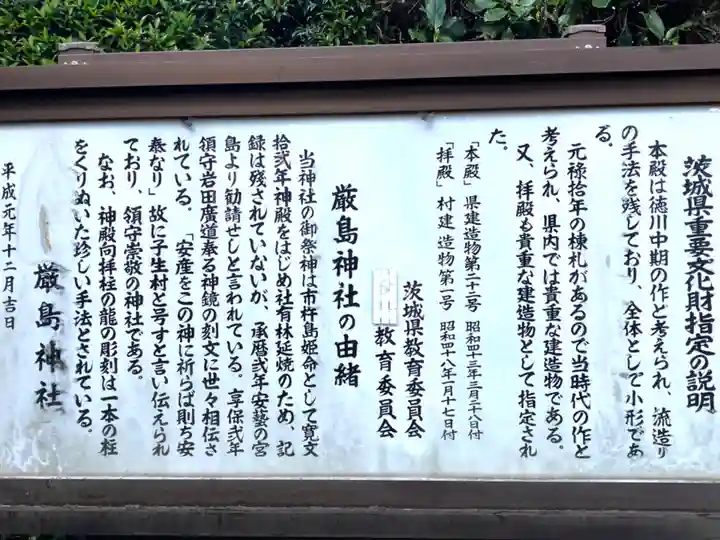 茨城県重要文化財指定の説明
本殿は徳川中期の作と考えられ、流造り
の手法を残しており、全体として小形であ
る。
元禄拾年の棟札があるので当時代の作と
考えられ、県内では貴重な建造物である。
又、拝殿も貴重な建造物として指定され
た。
「本殿」県建造物第二十二号 昭和四十三年三月二十八日付
「拝殿」村建造物第一号 昭和四十八年一月十七日付
茨城県教育委員会
教育委員会
厳島神社の由緒
当神社の御祭神は市杵島姫命として寛文
拾弐年神殿をはじめ社有林延焼のため、記
録は残されていないが、承暦弐年安藝の宮
島より勧請せしと言われている。享保弐年
領守岩田廣道奉る神鏡の刻文に世々相伝さ
れている。「安産をこの神に祈らば則ち安
泰なり」故に子生村と号すと言い伝えられ
ており、領守崇敬の神社である。
なお、神殿向拝柱の龍の彫刻は一本の柱
をくりぬいた珍しい手法とされている。
平成元年十二月吉日
厳島神社